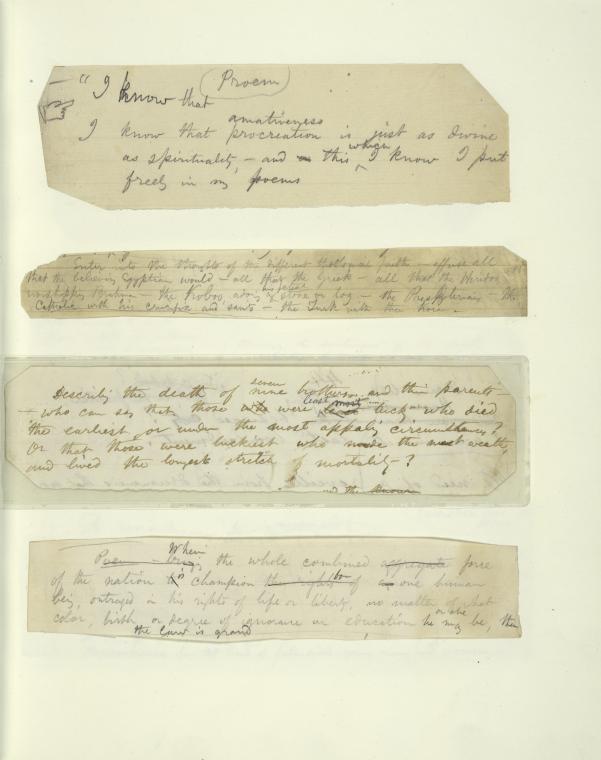 Proem
— "I know that
amativeness
I know that procreation is just as divine
as spirituality, — and this, which I know I put
freely in my poems
Enter into the thoughts of the different theological faiths — effuse all
that the believing Egyptian would — all that the Greek — all that the Hindoo
worshipping Brahma — the Koboo, adoring his stone or log — the Presbyterian — the
Catholic with his crucifix and saints — the Turk with the Koran.
seven
Describing the death of nine brothers and their parents
least most
— who can say that those who were lucky who died
the earliest, or under the most appaling circumstances?
Or that those were luckiest who made the most wealth,
and lived the longest stretch of mortality?
and the known
When
Poem the whole combined aggregate force
of the nation is champion the rights of one human
being, outraged in his rights of life or liberty, no matter of what
or she
color, birth or degree of ignorance or education he may be, then
the law is grand